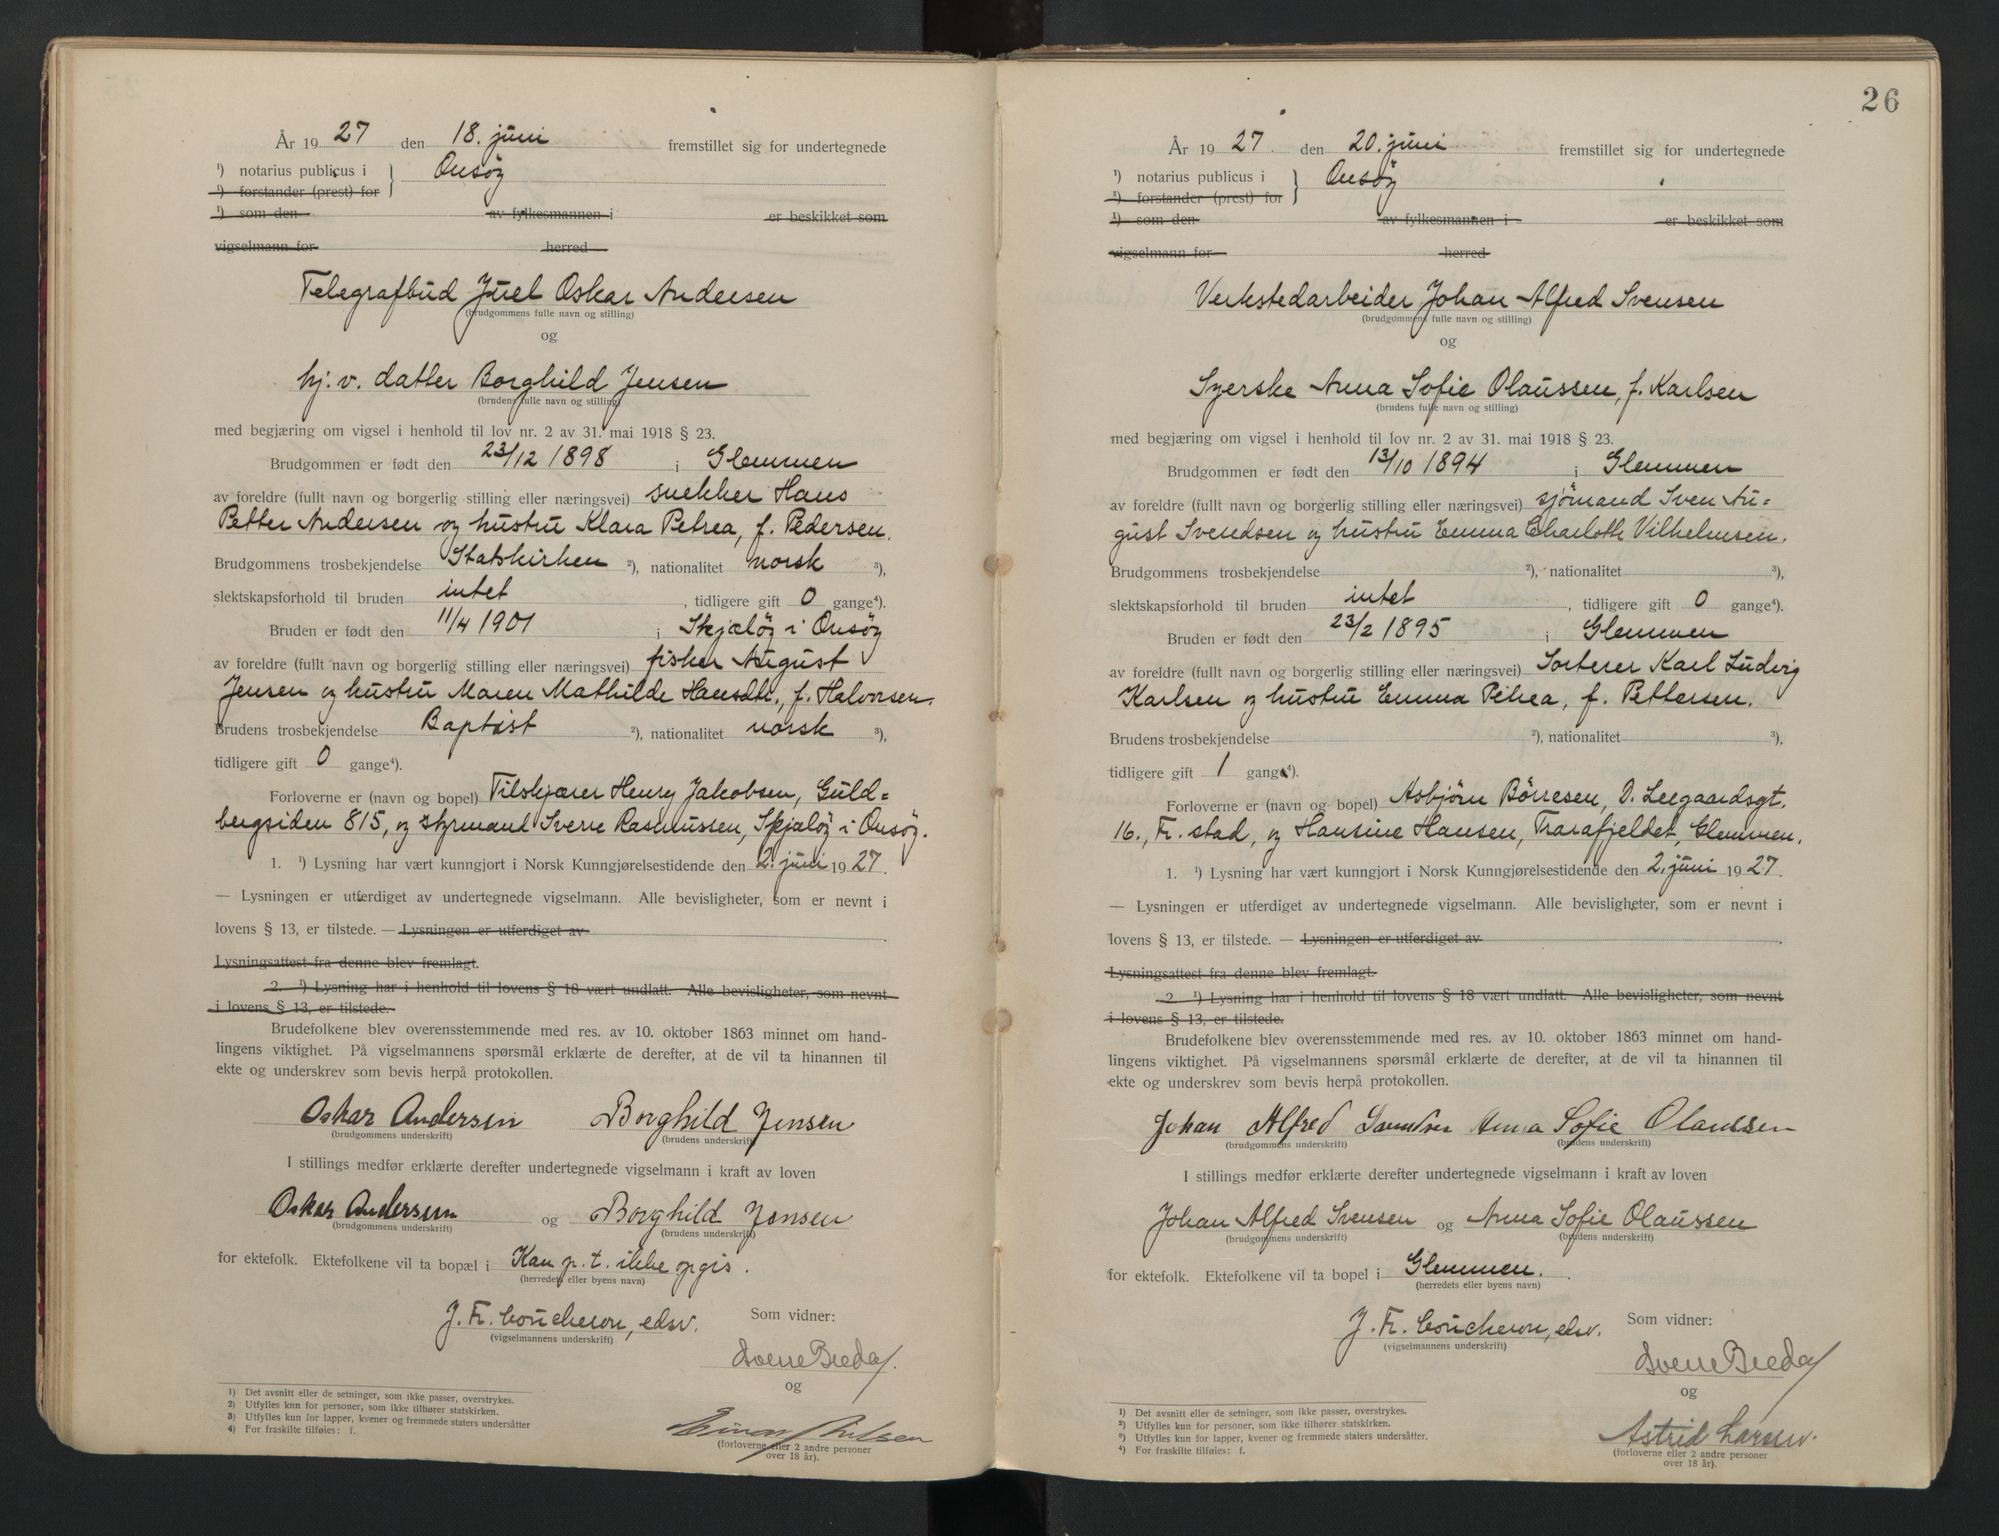 År 1927 den 18. juni fremstillet sig for undertegnede
¹) notarius publicus i } Onsöy
¹) forstander (prest) for
¹) som den av fylkesmannen i er beskikket som
vigselmann for herred
Telegrafbud Juel Oskar Andersen
(brudgommens fulle navn og stilling)
og
hj. v. datter Borghild Jensen
(brudens fulle navn og stilling)
med begjæring om vigsel i henhold til lov nr. 2 av 31. mai 1918 § 23.
Brudgommen er født den 23/12 1898 i Glemmen
av foreldre (fullt navn og borgerlig stilling eller næringsvei) snekker Hans
Petter Andersen og hustru Klara Petrea, f. Pedersen.
Brudgommens trosbekjendelse Statskirken ²), nationalitet norsk ³),
slektskapsforhold til bruden intet, tidligere gift 0 gange⁴).
Bruden er født den 11/4 1901 i Skjælöy i Onsöy
av foreldre (fullt navn og borgerlig stilling eller næringsvei) fisker August
Jensen og hustru Maren Mathilde Hansdtr., f. Halvorsen.
Brudens trosbekjendelse Baptist ²), nationalitet norsk ³),
tidligere gift 0 gange⁴).
Forloverne er (navn og bopel) Tilskjærer Henry Jakobsen, Guld=
bergsiden 815, og styrmand Sverre Rasmussen, Skjælöy i Onsöy.
1. ¹) Lysning har vært kunngjort i Norsk Kunngjørelsestidende den 2. juni 1927.
— Lysningen er utferdiget av undertegnede vigselmann. Alle bevisligheter, som er nevnt i
lovens § 13, er tilstede. — Lysningen er utferdiget av .
Lysningsattest fra denne blev fremlagt.
2. ¹) Lysning har i henhold til lovens § 18 vært undlatt. Alle bevisligheter, som nevnt
i lovens § 13, er tilstede.
Brudefolkene blev overensstemmende med res. av 10. oktober 1863 minnet om hand-
lingens viktighet. På vigselmannens spørsmål erklærte de derefter, at de vil ta hinannen til
ekte og underskrev som bevis herpå protokollen.
Oskar Andersen Borghild Jensen
(brudgommens underskrift) (brudens underskrift)
I stillings medfør erklærte derefter undertegnede vigselmann i kraft av loven
Oskar Andersen og Borghild Jensen
(brudgommens underskrift) (brudens underskrift)
for ektefolk. Ektefolkene vil ta bopæl i Kan p. t. ikke opgis.
(herredets eller byens navn)
J. Fr. Coucheron, edsv. Som vidner:
(vigselmannens underskrift)
Sverre Bredal
og
(forloverne eller 2 andre personer
over 18 år).
1) Det avsnitt eller de setninger, som ikke passer, overstrykes.
2) Utfylles kun for personer, som ikke tilhører statskirken.
3) Utfylles kun for lapper, kvener og fremmede staters undersåtter
4) For fraskilte tilføies: f.
26
År 1927. den 20. juni fremstillet sig for undertegnede
¹) notarius publicus i } Onsöy
¹) forstander (prest) for
¹) som den av fylkesmannen i er beskikket som
vigselmann for herred
Verkstedarbeider Johan Alfred Svensen
(brudgommens fulle navn og stilling)
og
Syerske Anna Sofie Olaussen, f. Karlsen
(brudens fulle navn og stilling)
med begjæring om vigsel i henhold til lov nr. 2 av 31. mai 1918 § 23.
Brudgommen er født den 13/10 1894 i Glemmen
av foreldre (fullt navn og borgerlig stilling eller næringsvei) sjömand Sven Au=
gust Svendsen og hustru Emma Charloth Vilhelmsen.
Brudgommens trosbekjendelse ²), nationalitet ³),
slektskapsforhold til bruden intet, tidligere gift 0 gange⁴).
Bruden er født den 23/2 1895 i Glemmen
av foreldre (fullt navn og borgerlig stilling eller næringsvei) Sorterer Karl Ludvig
Karlsen og hustru Emma Petrea, f. Pettersen.
Brudens trosbekjendelse ²), nationalitet ³),
tidligere gift 1 gang⁴).
Forloverne er (navn og bopel) Asbjörn Börresen, O. Leegaardsgt.
16., Fr. stad, og Hansine Hansen, Trarafjeldet, Glemmen.
1. ¹) Lysning har vært kunngjort i Norsk Kunngjørelsestidende den 2. juni 1927.
— Lysningen er utferdiget av undertegnede vigselmann. Alle bevisligheter, som er nevnt i
lovens § 13, er tilstede. — Lysningen er utferdiget av .
Lysningsattest fra denne blev fremlagt.
2. ¹) Lysning har i henhold til lovens § 18 vært undlatt. Alle bevisligheter, som nevnt
i lovens § 13, er tilstede.
Brudefolkene blev overensstemmende med res. av 10. oktober 1863 minnet om hand-
lingens viktighet. På vigselmannens spørsmål erklærte de derefter, at de vil ta hinannen til
ekte og underskrev som bevis herpå protokollen.
Johan Alfred Svendsen Anna Sofie Olaussen
(brudgommens underskrift) (brudens underskrift)
I stillings medfør erklærte derefter undertegnede vigselmann i kraft av loven
Johan Alfred Svensen og Anna Sofie Olaussen
(brudgommens underskrift) (brudens underskrift)
for ektefolk. Ektefolkene vil ta bopel i Glemmen.
(herredets eller byens navn)
J. Fr. Coucheron, edsv. Som vidner:
(vigselmannens underskrift)
Sverre Bredal
og
Astrid Larsen.
(forloverne eller 2 andre personer
over 18 år).
¹) Det avsnitt eller de setninger, som ikke passer, overstrykes.
²) Utfylles kun for personer, som ikke tilhører statskirken.
³) Utfylles kun for lapper, kvener og fremmede staters undersåtter.
⁴) For fraskilte tilføies: f.